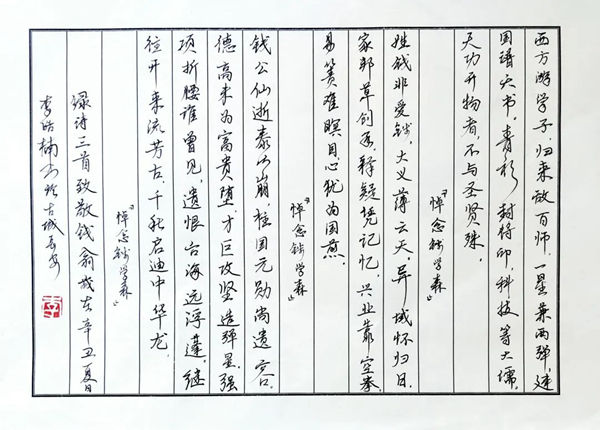 西方游学子,归来敌百师。一星兼两弹,建
国谱天书。青衫封将印,科技筹大儒。
天功开物者,不与圣贤殊。
《悼念钱学森》
姓钱非爱钱,大义薄云天。异域怀归日,
家邦草创年。释疑凭记忆,兴业靠空拳。
易箦难瞑目,心犹为国煎。
《悼念钱学森》
钱公仙逝泰山崩,柱国元勋尚遗容。
德高未为富贵堕,才巨攻坚造弹星。强
项折腰谁曾见,遗恨台海远浮蓬。继
往开来流芳古,千秋启迪中华龙。
《悼念钱学森》
录诗三首致敬钱翁岁在辛丑夏日
李皓楠书于古城长安
李